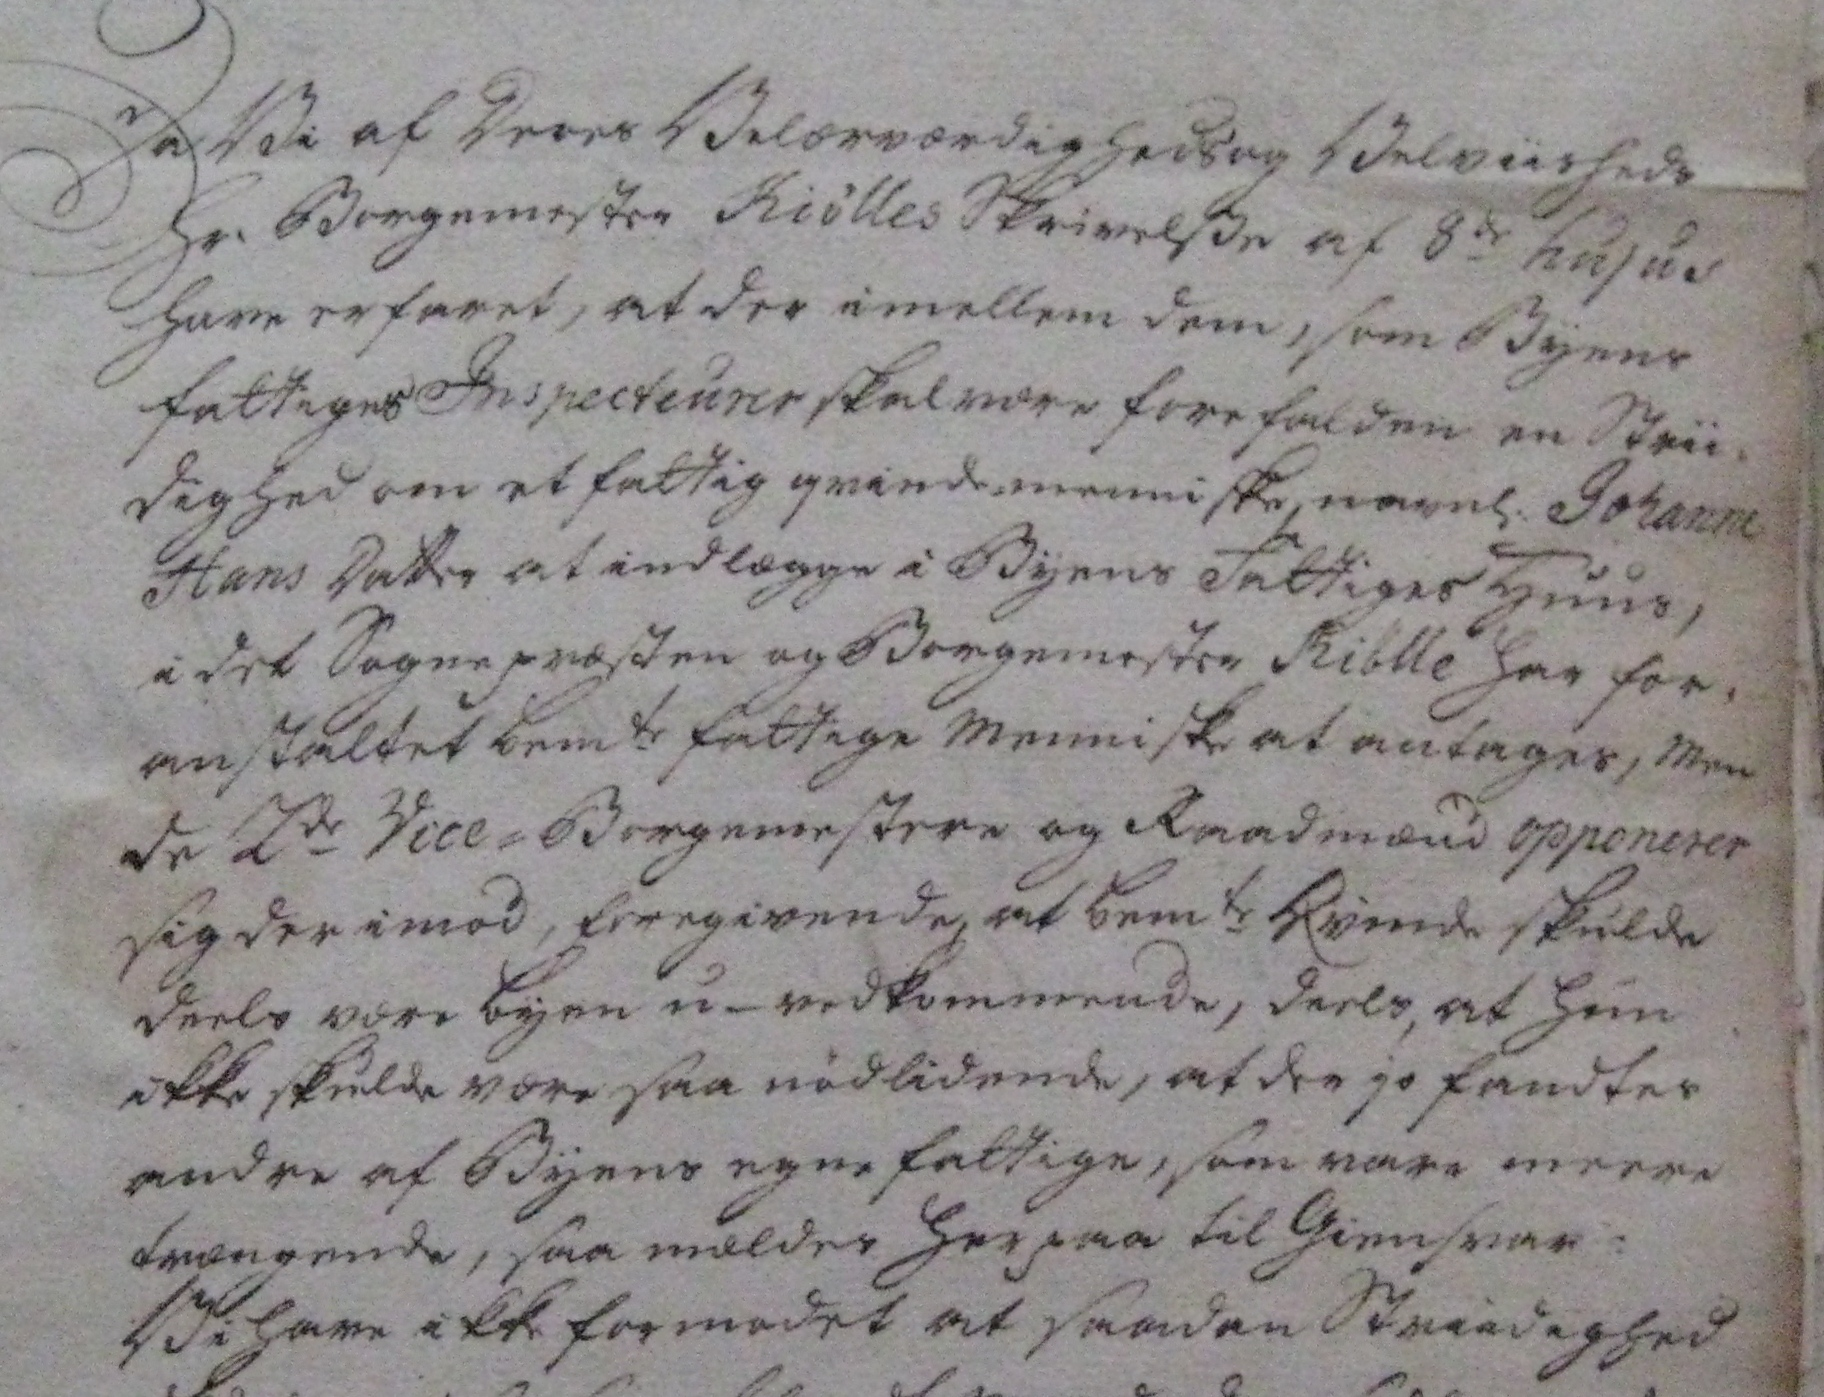 Da Vi af Deres Velærværdigheds og Velviisheds
Hr. Borgemester Kiölles Skrivelße af 8de hujus
have erfaret, at der imellem dem, som Byens
fattiges Inspecteurer skal være forefalden en Strii-
dighed om et fattig qvindemenniske, navnl. Johanne
Hans Datter at indlægge i Byens Fattiges Huus,
i det Sognepræsten og Borgemester Kiölle har for-
anstaltet bemte fattige Menniske at antages, Men
de 2de Vice-Borgemestere og Raadmænd opponerer
sig derimod, foregivende, at bemte Qvinde skulde
deels være byen u-vedkommende, deels, at hun
ikke skulde være saa nödlidende, at der jo fandtes
andre af Byens egne fattige, som vare meere
trængende, saa meldes herpaa til Giensvar:
Vi have ikke formodet at saadan Striidighed